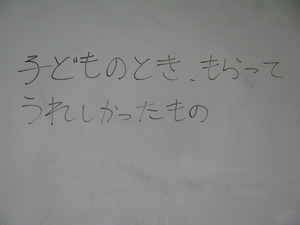 子どものとき、もらって
うれしかったもの